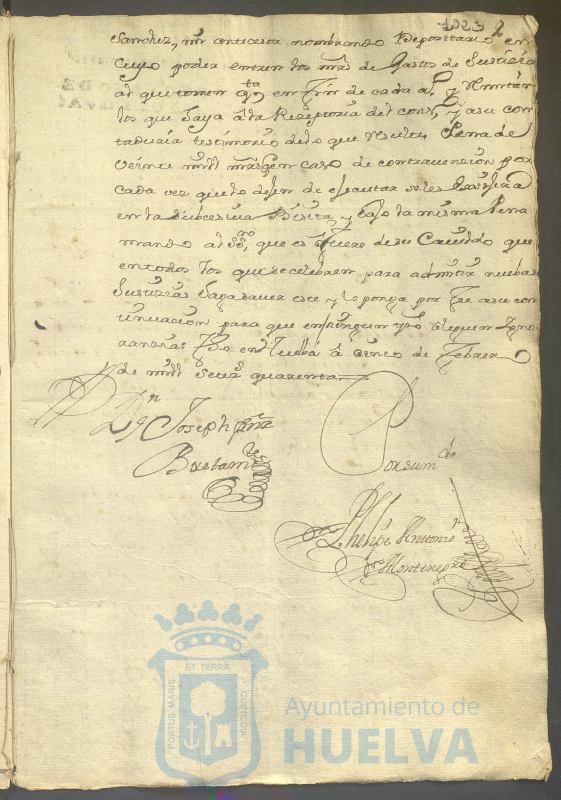 1023 2
Sanchez, mi antecesor nombrando Depositario en
cuyo poder entren los mrs de Gastos de Justicia
al que tomen qta en fin de cada a.º y Remitan
los que haya â la Rezeptoria del cons.º y a su con
taduria testimonio delo que resulte, Pena de
veinte mill mrs en caso de contravencion por
cada vez que lo dejen de ejecutar se les
en la subcesiva Visita, y bajo la misma Pena
mando al ss.no que es ô fuere de su Cavildo que
en todos los que se celebraen para admitir nuebas
Justizias haga saver este y lo ponga por fee a su con
tinuacion para que en ningun tpo aleguen Igno
ranzia: fho en Huelba â cinco de Febrero
de mill setez.s quarenta
Dn Joseph
Bustam.te
Por su m.do
Phelipe Antonio
Montenegro
ET TERRÆ
PORTUS MARIS
CUSTODIA
Ayuntamiento de
HUELVA